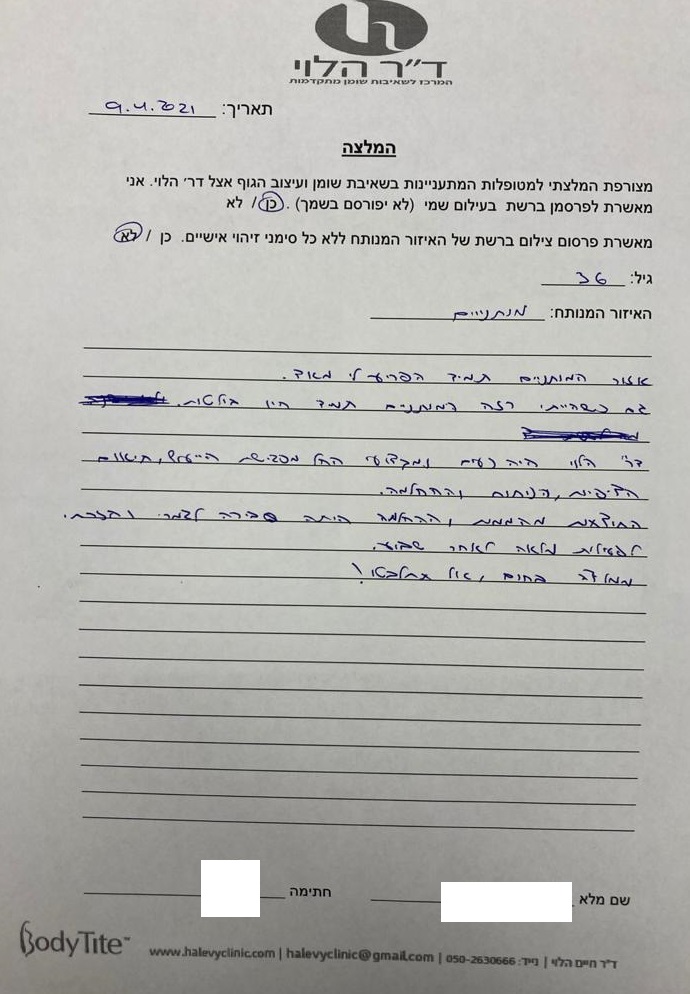 ד״ר הלוי
המרכז לשאיבות שומן מתקדמות
תאריך: 9.4.2021
המלצה
מצורפת המלצתי למטופלות המתעניינות בשאיבת שומן ועיצוב הגוף אצל דר׳ הלוי. אני
מאשרת לפרסמן ברשת בעילום שמי (לא יפורסם בשמך). כן / לא
מאשרת פרסום צילום ברשת של האיזור המנותח ללא כל סימני זיהוי אישיים. כן / לא
גיל: 36
האיזור המנותח: מותניים
אזור המותניים תמיד הפריע לי מאוד.
גם כשהייתי רזה המותניים תמיד היו בולטות.
דר׳ הלוי היה נעים ומקצועי החל מפגישת הייעוץ, תיאום
הציפיות, הניתוח וההחלמה.
התוצאות מהממות וההחלמה היתה סבירה לגמרי וחזרתי
לפעילות מלאה לאחר שבוע.
ממליצה בחום, אל תתלבטו!
שם מלא
חתימה
BodyTite™
www.halevyclinic.com | halevyclinic@gmail.com | 050-2630666 :ד״ר חיים הלוי | נייד